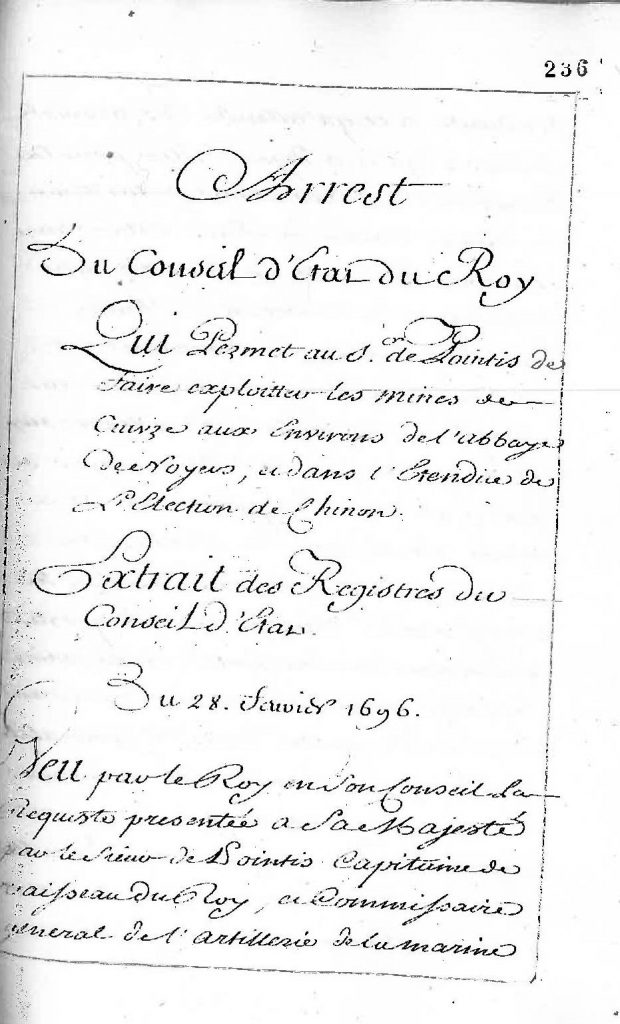 236
Arrest
Du Conseil d'Etat du Roy
Qui Permet au S.r de Pointis de
faire exploitter les mines de
Cuivre aux Environs de l'abbaye
de Noyers, et dans l'Etendüe de
L'Election de Chinon.
Extrait des Registres du
Conseil d'Etat.
Du 28. Janvier 1696.
Veu par le Roy en Son Conseil La
Requeste presenteé a Sa Majesté
par le Sieur de Pointis Capitaine de
Vaisseau du Roy, et Commissaire
general de l'artillerie de la marine